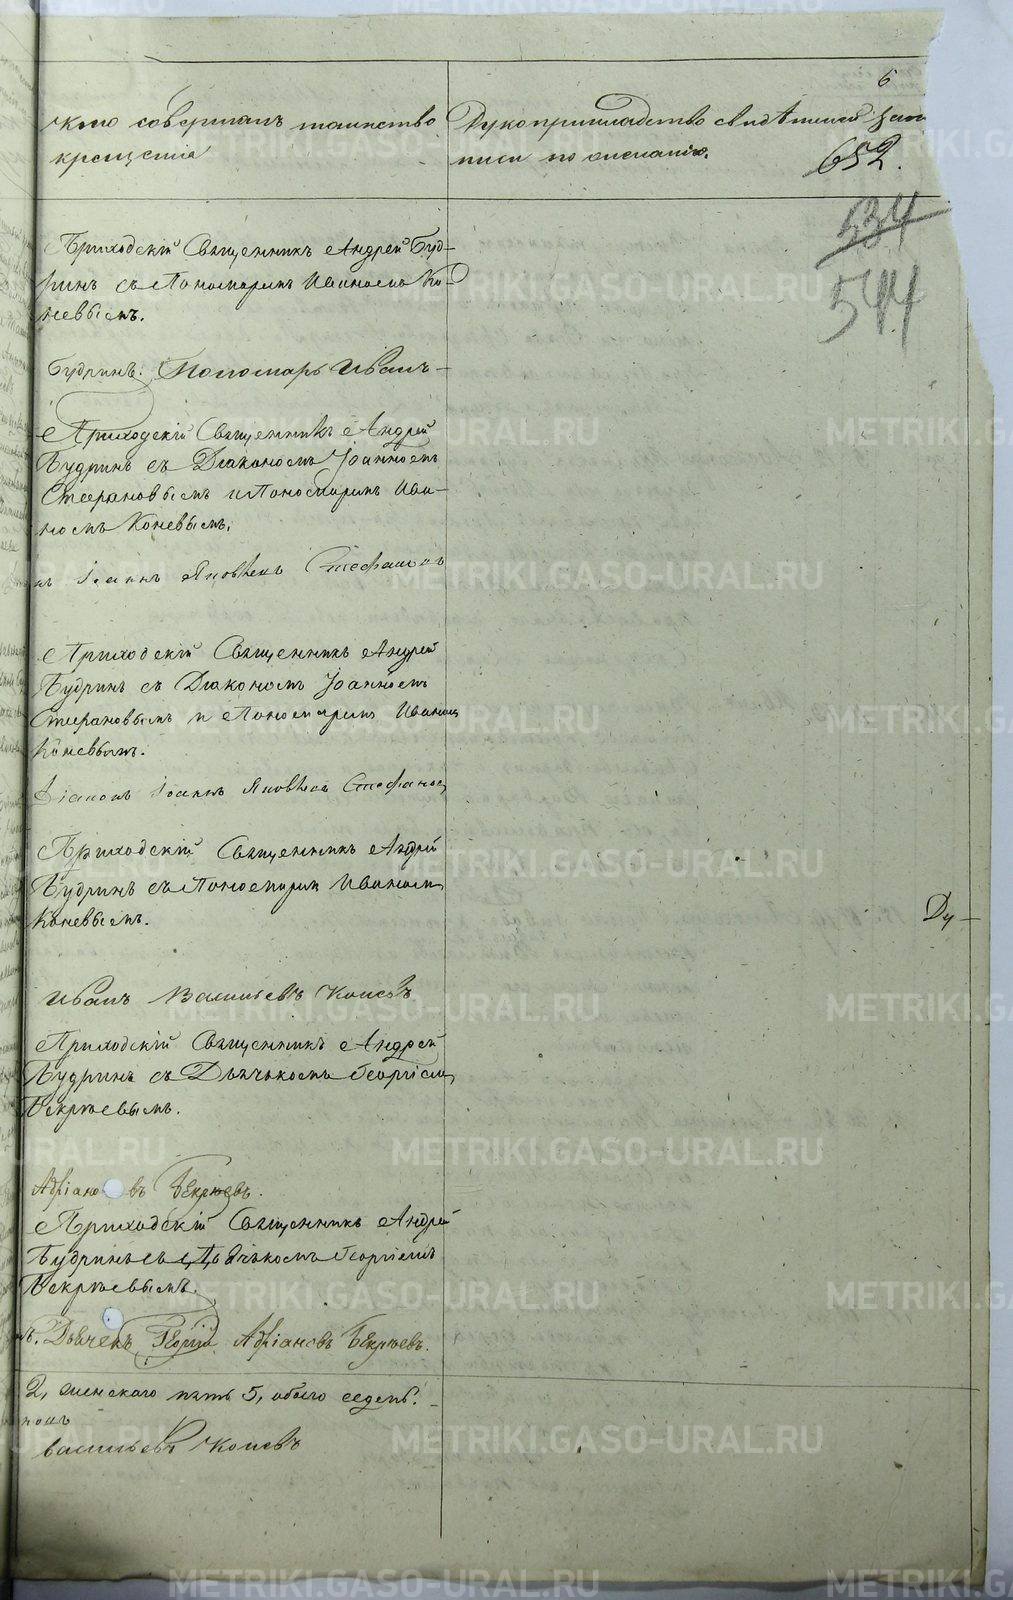 6
Кто совершалъ таинство
крещенія
Рукоприкладство свидѣтелей зап
писи по желанію.
652.
534
544
Приходскій Священникъ Андрей Буд-
ринъ съ Пономаремъ Иваномъ Ко-
невымъ.
Будринъ. Пономарь Иванъ
Приходскій Священникъ Андрей
Будринъ съ Діакономъ Іоанномъ
Стефановымъ и Пономаремъ Ива-
номъ Коневымъ.
нъ Іоаннъ Яковлевъ Стефановъ
Приходскій Священникъ Андрей
Будринъ съ Діакономъ Іоанномъ
Стефановымъ и Пономаремъ Иваномъ
Коневымъ.
Діаконъ Іоаннъ Яковлевъ Стефановъ
Приходскій Священникъ Андрей
Будринъ съ Пономаремъ Иваномъ
Коневымъ.
Ду-
Иванъ Васильевъ Коневъ
Приходскій Священникъ Андрей
Будринъ съ Дьячькомъ Георгіемъ
Бекряевымъ.
Адріановъ Бекряевъ.
Приходскій Священникъ Андрей
Будринъ съ Дьячькомъ Георгіемъ
Бекряевымъ.
ъ. Дьячекъ Георгій Адріановъ Бекряевъ.
2, женскаго пять 5, обоего седмь.
Васильевъ Коневъ
METRIKI.GASO-URAL.RU